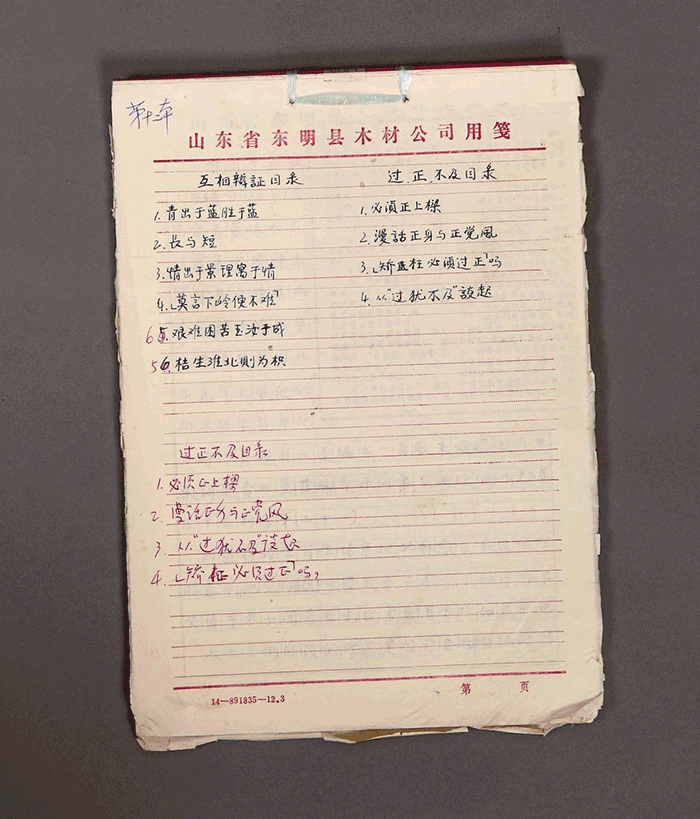 第十二本
山东省东明县木材公司用笺
互相辩证目录
1.青出于蓝胜于蓝
2.长与短
3.情出于景理寓于情
4.「莫言下岭便不难」
6 5.艰难困苦玉汝于成
5 6.桔生淮北则为枳
过正不及目录
1.必须正上樑
2.漫話正身与正党風
3.「矫枉必须过正」吗
4.从"过犹不及"談起
过正不及目录
1.必须正上樑
2.漫話正身与正党风
3.从"过犹不及"谈起
4.「矫枉必须过正」吗?
14—891835—12.3
第 页